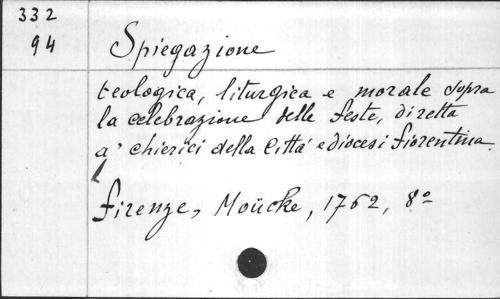 332
94
Spiegazione
teologica, liturgica e morale sopra
la celebrazione delle feste, diretta
a' chierici della Città e diocesi fiorentina.
Firenze, Moücke, 1762, 8º